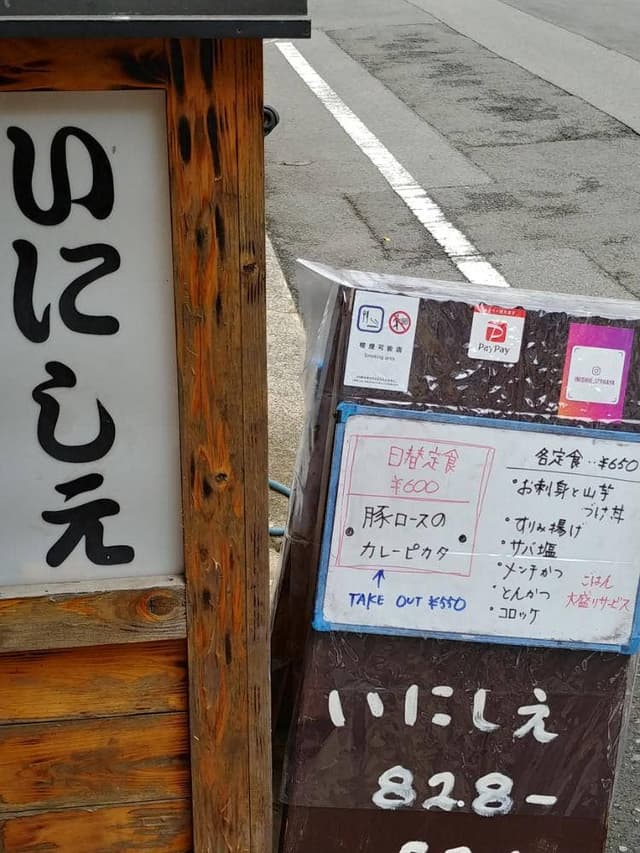 いにしえ
喫煙可能店
Smoking area
PayPay
日替定食
¥600
豚ロースの
カレーピカタ
↑
TAKE OUT ¥550
各定食‥¥650
・お刺身と山芋
づけ丼
・すりみ揚げ
・サバ塩
・メンチかつ
・とんかつ
・コロッケ
ごはん
大盛りサービス
いにしえ
828-